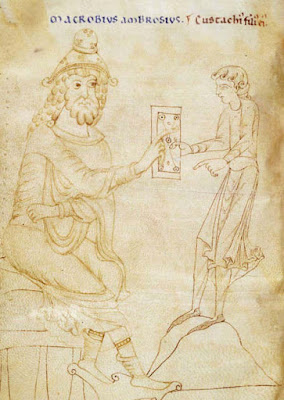 MACROBIUS AMBROSIUS. Eustachii filii